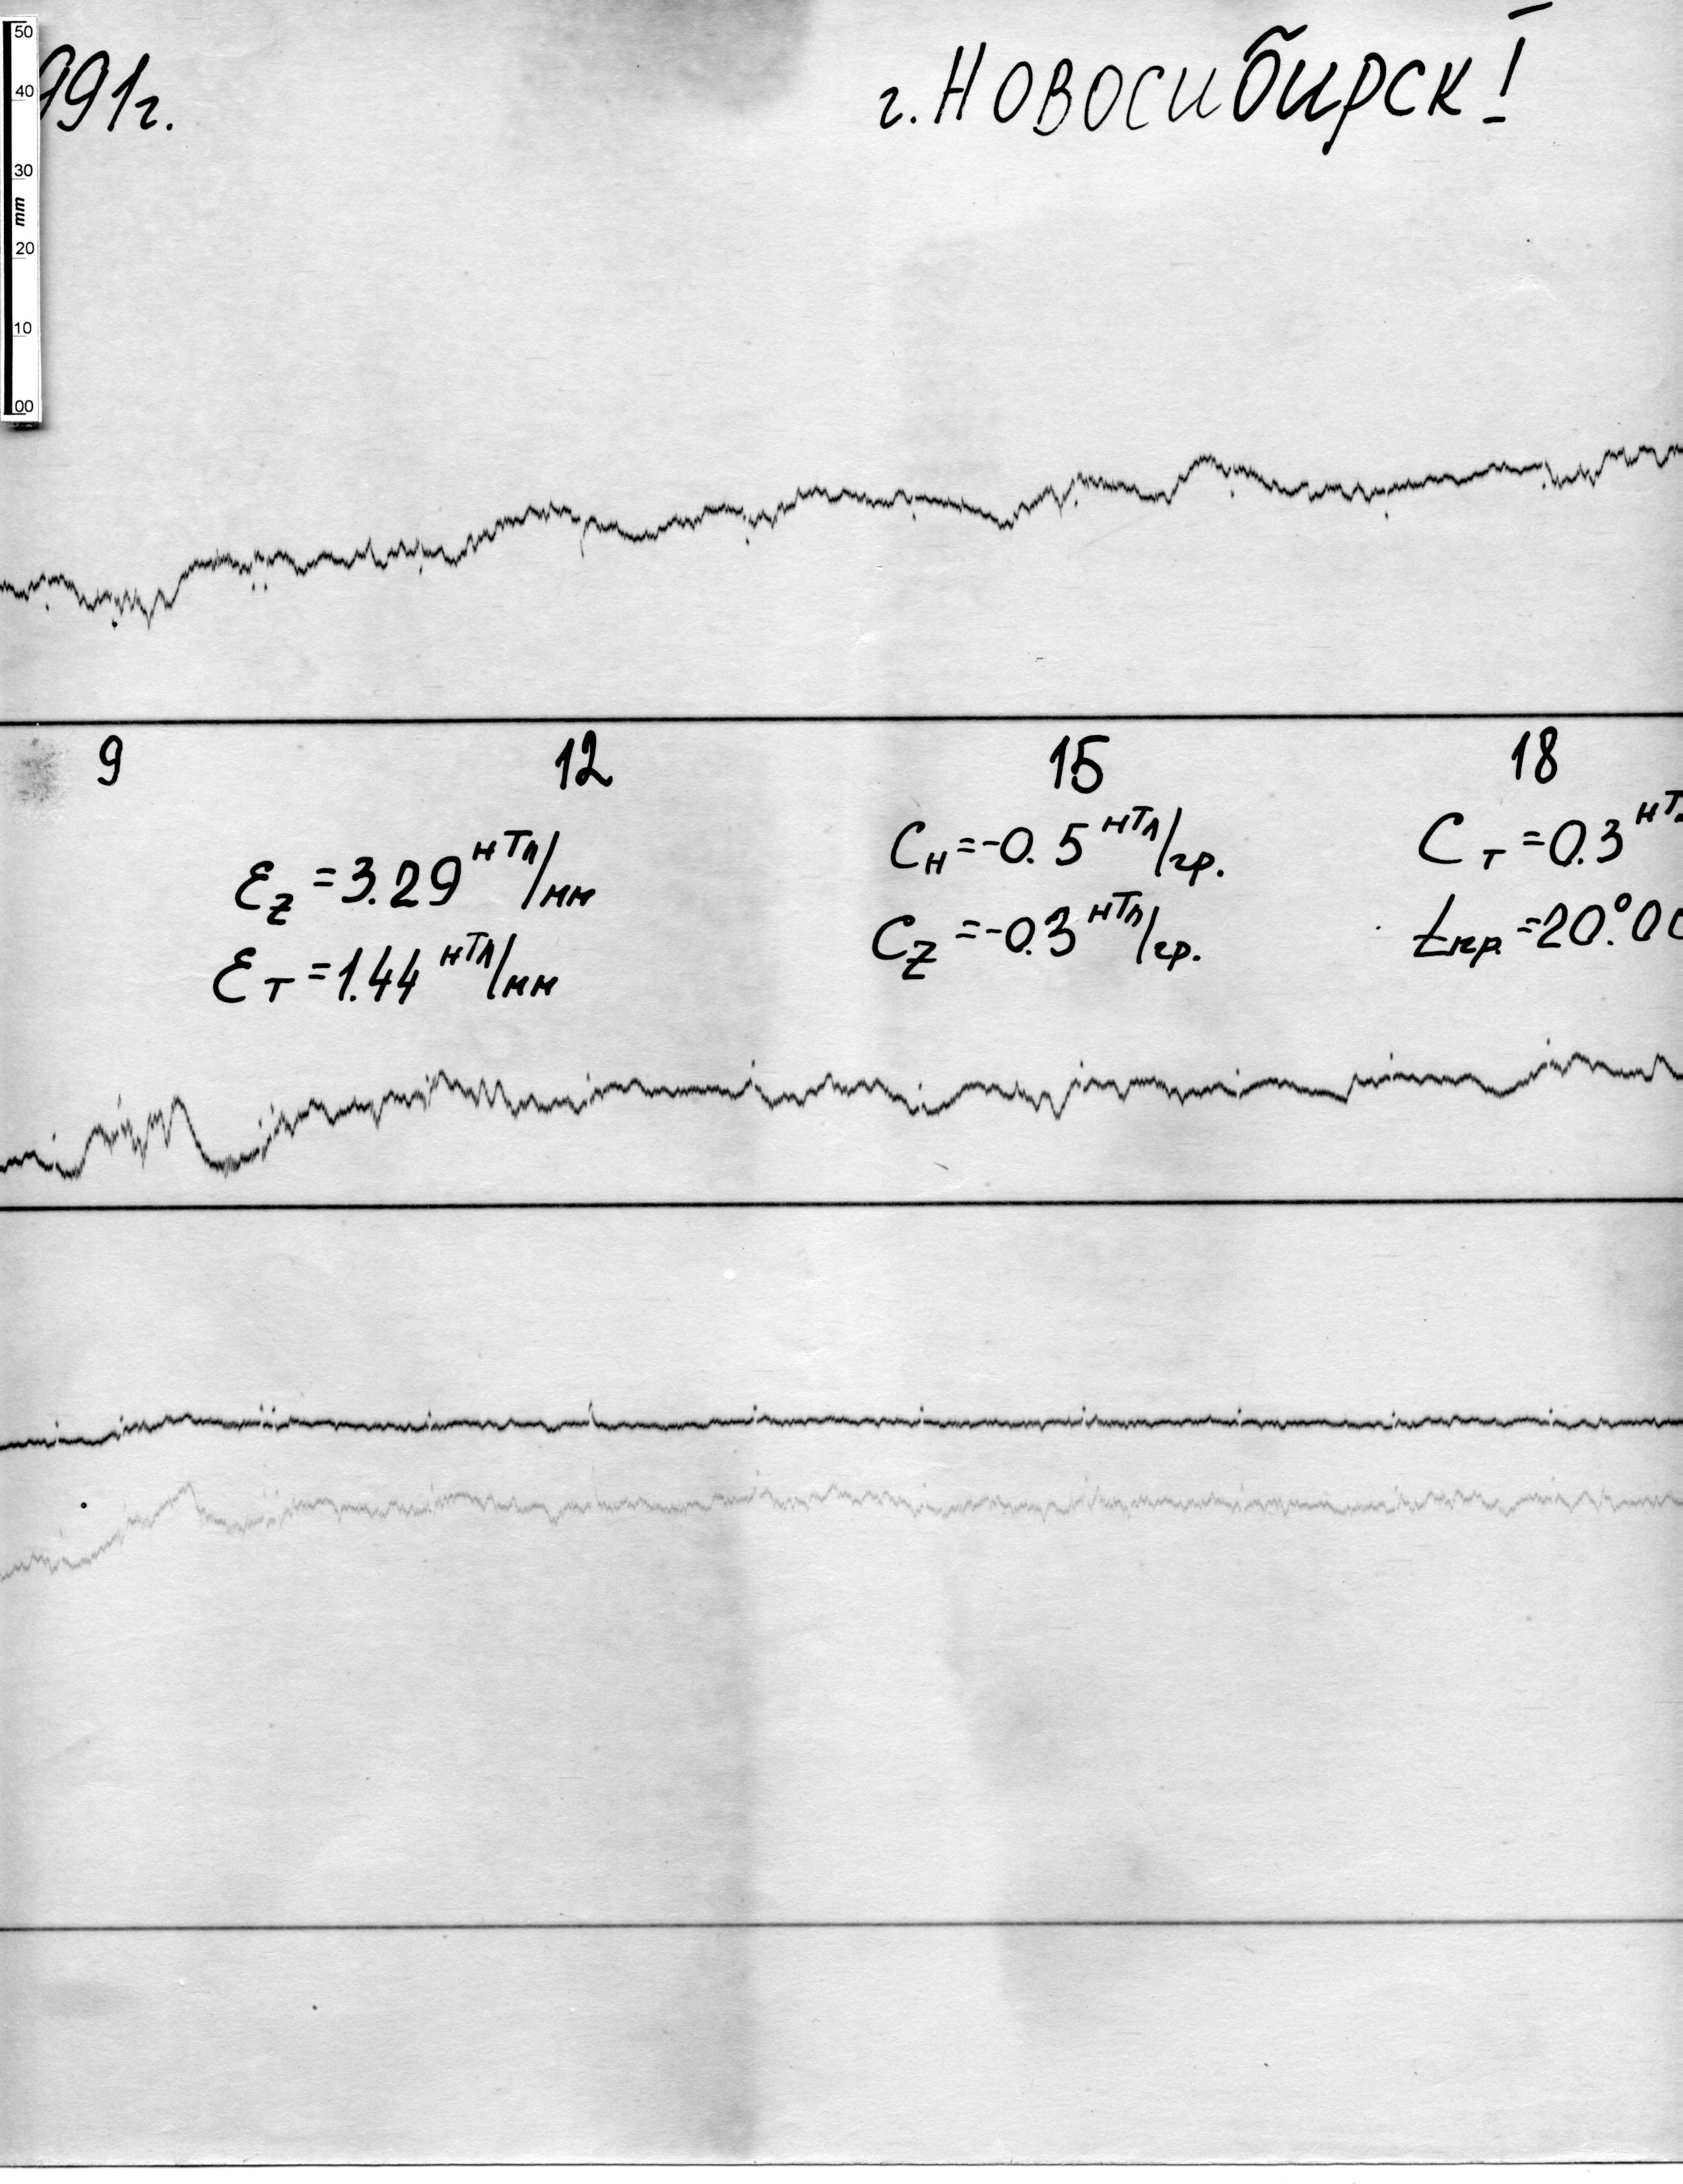 50
40
30
mm
20
10
00
991г.
г. Новосибирск!
9 12 15 18
εz = 3.29 нТл/мм
εт = 1.44 нТл/мм
Cн = -0.5 нТл/гр.
Cz = -0.3 нТл/гр.
Cт = 0.3 нТ
tпр. = 20.°0